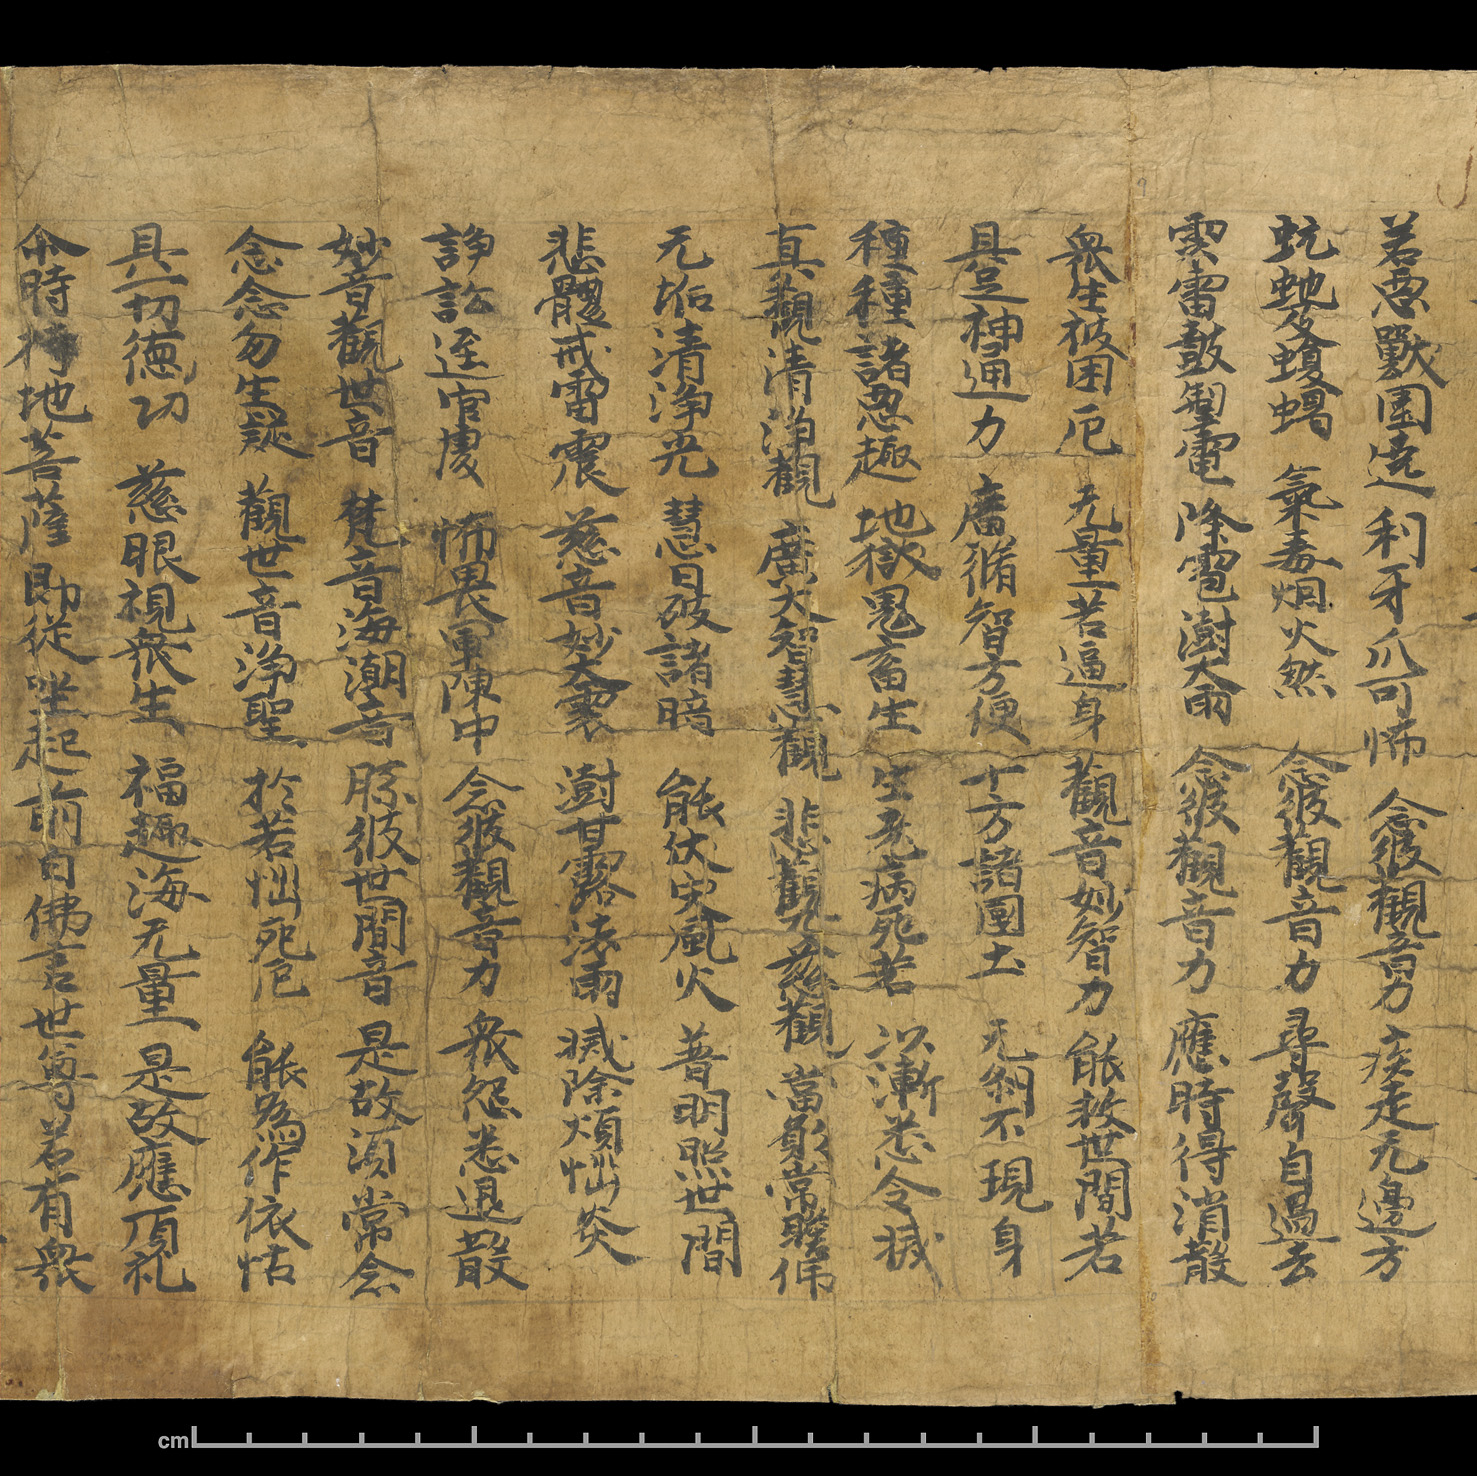 若惡獸圍遶 利牙爪可怖 念彼觀音力 疾走无邊方
蚖虵及蝮蝎 氣毒烟火然 念彼觀音力 尋聲自迴去
雲雷鼓掣電 降雹澍大雨 念彼觀音力 應時得消散
衆生被困厄 无量苦逼身 觀音妙智力 能救世間苦
具足神通力 廣脩智方便 十方諸國土 无刹不現身
種種諸惡趣 地獄鬼畜生 生老病死苦 以漸悉令滅
真觀清淨觀 廣大智慧觀 悲觀及慈觀 當願常瞻仰
无垢清淨光 慧日破諸暗 能伏灾風火 普明照世間
悲體戒雷震 慈音妙大雲 澍甘露法雨 滅除煩惱炎
諍訟逕官處 怖畏軍陣中 念彼觀音力 衆怨悉退散
妙音觀世音 梵音海潮音 勝彼世間音 是故須常念
念念勿生疑 觀世音淨聖 於苦惱死厄 能爲作依怙
具一切德功 慈眼視衆生 福趣海无量 是故應頂礼
尒時持地菩薩即從坐起前白佛言世尊若有衆